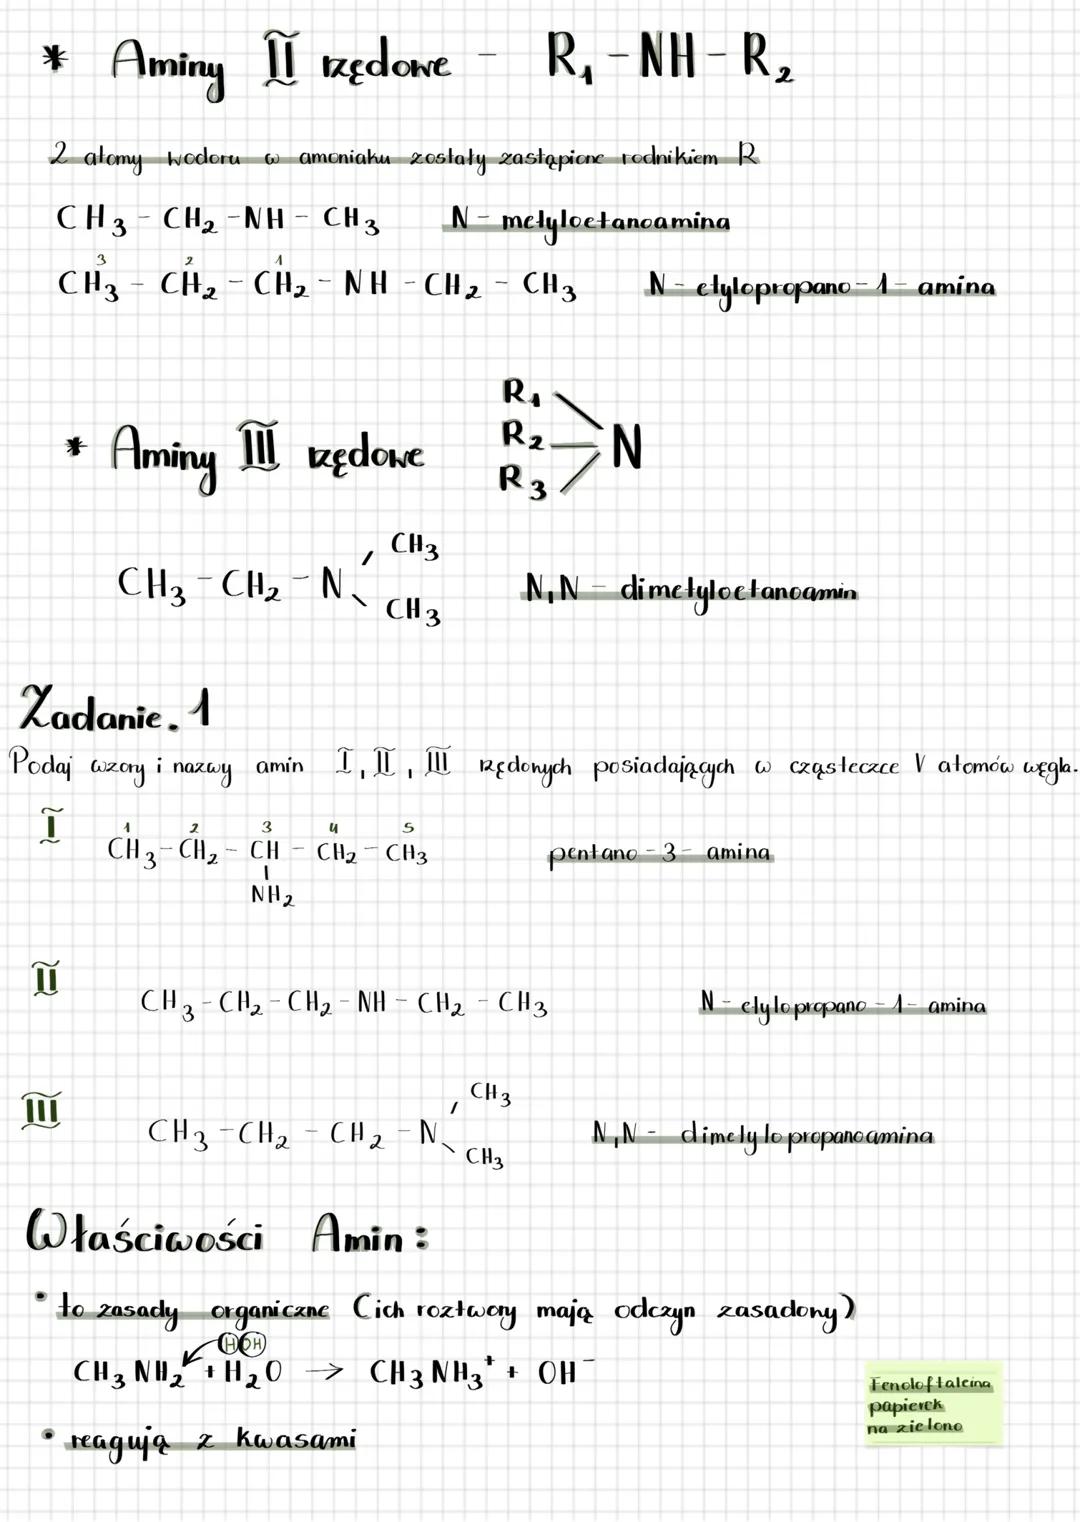 * Aminy II rzędowe - R₁ - NH - R₂
2 atomy wodoru w amoniaku zostały zastąpione rodnikiem R
CH₃ - CH₂ - NH - CH₃ N - metyloetanoamina
3 2 1
CH₃ - CH₂ - CH₂ - NH - CH₂ - CH₃ N - etylopropano - 1 - amina
R₁
* Aminy III rzędowe R₂ N
R₃
CH₃
CH₃ - CH₂ - N N,N - dimetyloetanoamin
CH₃
Zadanie. 1
Podaj wzory i nazwy amin I, II, III rzędonych posiadających w cząsteczce V atomów węgla.
I
1 2 3 4 5
CH₃ - CH₂ - CH - CH₂ - CH₃ pentano - 3 - amina
NH₂
II
CH₃ - CH₂ - CH₂ - NH - CH₂ - CH₃ N - etylopropano - 1 - amina
III
CH₃
CH₃ - CH₂ - CH₂ - N N,N - dimetylopropanoamina
CH₃
Właściwości Amin:
• to zasady organiczne (ich roztwory mają odczyn zasadowy)
H OH
CH₃NH₂ + H₂O → CH₃NH₃⁺ + OH⁻
Fenoloftaleina
papierek
na zielono
• reagują z kwasami